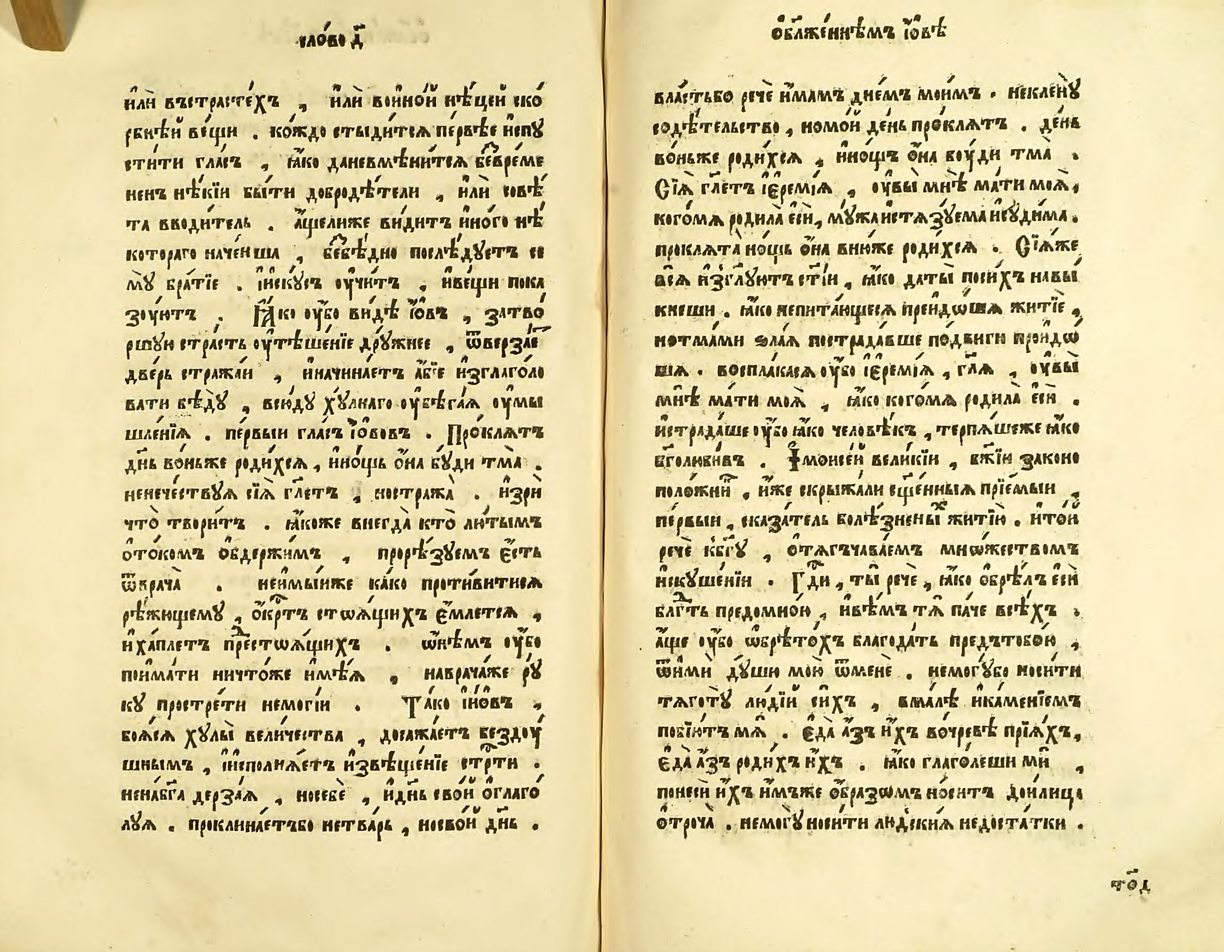 сло́во д҃
и҆лѝ въстрасте́хъ , и҆лѝ во и҆но́й нѣ́цей ско́
рбнѣ́й ве́щи . ко́ждо стыди́тсѧ пе́рвѣе и҆спꙋ
сти́ти гла́съ , ꙗ҆́ко даневмѣни́тсѧ безвре́ме
ненъ нѣ́кїи бы́ти добродѣ́тели , и҆лѝ совѣ́
та вводи́тель . а҆́щелиже ви́дитъ и҆но́го нѣ́
котораго наче́нша , безбѣ́дно послѣ́дꙋетъ се
мꙋ̀ бра́тїе . і҆и҆скꙋ́съ ᲂу҆чи́тъ , и҆ве́щи пока
зꙋ́ютъ . Ꙗ҆́ко ᲂу҆́бо ви́дѣ і҆́ѡвъ , затво́
ршꙋю стра́сть ᲂу҆тѣше́нїе дрꙋ́жнее , ѿверза́е
две́рь стража́й , и҆начина́етъ а҆́бїе и҆зглаго́ло
вати бѣдꙋ̀ , всю́дꙋ хꙋ́лнаго ᲂу҆бѣга́ѧ ᲂу҆мы
шле́нїѧ . пе́рвыи гла́съ і҆́ѡвовъ . Про́клѧтъ
дн҃ь во́ньже роди́хсѧ , и҆но́щь ѻ҆на̀ бꙋ́ди тма̀ .
ненече́ствꙋѧ сїѧ̀ гл҃етъ , но стражда̀ . и҆зрѝ
что̀ твори́тъ . ꙗ҆́коже внегда̀ кто̀ лю́тымъ
ѻ҆то́комъ ѻ҆бдержи́мъ , прорѣ́зꙋемъ є҆́сть
ѿврача̀ . неимы́иже ка́ко проти́витисѧ
рѣ́жꙋщемꙋ , ѻ҆́крⷭ҇тъ стоѧ́щихъ є҆́млетсѧ ,
и҆ха́плетъ пре́дстоѧ́щихъ . ѡ҆не́мъ ᲂу҆́бо
пои́мати ничто́же и҆мѣ́ѧ , наврача́же рꙋ́
кꙋ простре́ти немогі́и . Та́ко и҆і҆́ѡвъ ,
боѧ́сѧ хꙋлы̀ вели́чества , досажда́етъ бездꙋ́
шнымъ , і҆и҆сполнѧ́етъ и҆звѣще́нїе стрⷭ҇ти .
нена́бг҃а дерза́ѧ , носебѐ , и҆дн҃ь сво́й ѻ҆глаго́
лꙋѧ . проклина́етъбо нетва́рь , носво́й дн҃ь .
ѻ҆блаже́ннѣмъ і҆́ѡвѣ
вла́стьбо речѐ и҆́мамъ дне́мъ мои́мъ . некленꙋ̀
содѣ́тельство , номо́й де́нь про́клѧтъ . де́нь
во́ньже роди́хсѧ , и҆но́щь ѻ҆на̀ бꙋ́ди тма̀ .
Сїѧ̀ гл҃етъ і҆єремі́ѧ , ᲂу҆вы̀ мнѣ̀ ма́ти моѧ̀ ,
кого́мѧ роди́ла є҆сѝ , мꙋ́жа и҆стѧзꙋ́ема и҆сꙋди́ма .
проклѧта̀ но́щь ѻ҆на̀ вни́же роди́хсѧ . Сїѧ́же
всѧ̀ и҆згл҃ютъ ст҃і́и , ꙗ҆́ко даты̀ поси́хъ навы́
кнеши . ꙗ҆́ко непита́ющесѧ преидо́шѧ житїѐ ,
нотма́ми ѕла́ѧ пострада́вше по́двиги проидо́
шѧ . воспла́касѧ ᲂу҆́бо і҆єремі́ѧ , гл҃ѧ , ᲂу҆вы̀
мнѣ̀ ма́ти моѧ̀ , ꙗ҆́ко кого́мѧ роди́ла є҆сѝ .
и҆страда́ше ᲂу҆́бо ꙗ҆́ко человѣ́къ , терпѧ́шеже ꙗ҆́ко
бг҃олюби́въ . І҆моисе́й вели́кїи , бж҃їи законо
поло́жникъ , и҆́же скрыжа́ли сщ҃е́нныѧ прїе́мыи ,
пе́рвыи , сказа́тель болѣ́зненыⷯ житїю̀ . и҆то́й
речѐ кбг҃ꙋ , ѻ҆тѧгъчава́емъ мно́жествомъ
и҆скꙋше́нїи . Гдⷭ҇и , ты̀ речѐ , ꙗ҆́ко ѻ҆брѣ́лъ є҆сѝ
блг҃ть предомно́ю , и҆вѣ́мъ тѧ̀ па́че всѣ́хъ .
а҆́ще ᲂу҆́бо ѡ҆брѣто́хъ благода́ть предътобо́ю ,
ѿи҆мѝ дꙋ́шꙋ мою̀ ѿменѐ . немогꙋ́бо носи́ти
тѧготꙋ̀ люді́й си́хъ , вма́лѣ и҆ка́менїемъ
побїю́тъ мѧ̀ . є҆да̀ а҆́зъ и҆́хъ вочре́вѣ прїѧ́хъ ,
є҆да̀ а҆́зъ роди́хъ и҆́хъ . ꙗ҆́ко глаго́леши мѝ ,
понесѝ и҆́хъ и҆́мъже ѻ҆́бразомъ но́ситъ дои́лица
ѻ҆троча̀ . немогꙋ̀ носи́ти лю́дскиѧ недоста́тки .
то́д